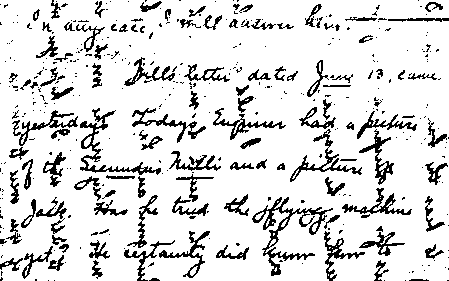 In any case, I will answer him.
Bill's letter dated June 13, came
yesterday. Today's Enquirer had a picture
of the Secundus and a picture of
Jack. Has he tried the flying machine
yet. He certainly did know how to